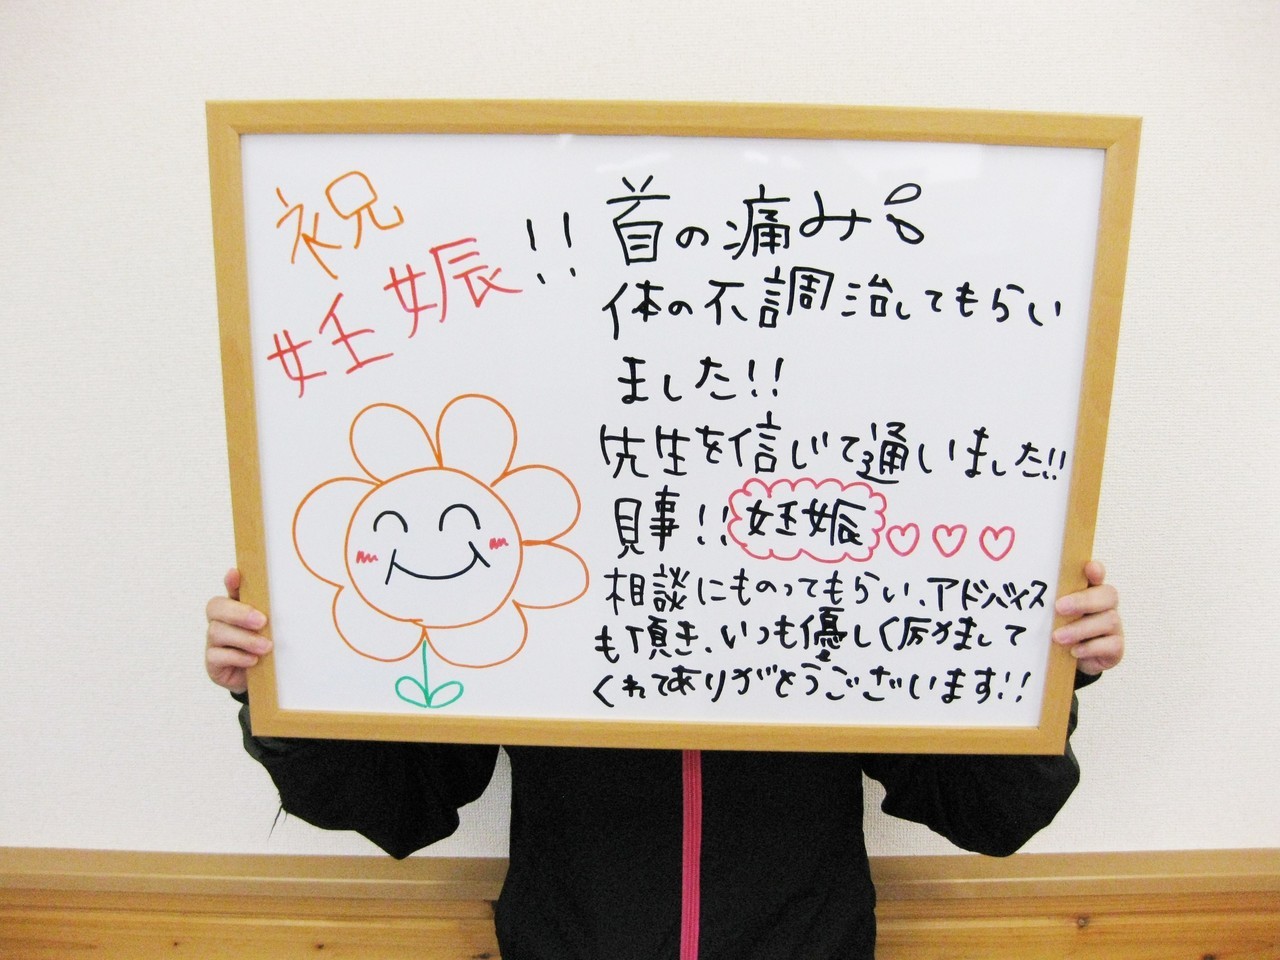 祝
妊娠!!
首の痛み
体の不調治してもらい
ました!!
先生を信じて通いました!!
見事!!妊娠♡♡♡
相談にものってもらい、アドバイス
も頂き、いつも優しく励まして
くれてありがとうございます!!